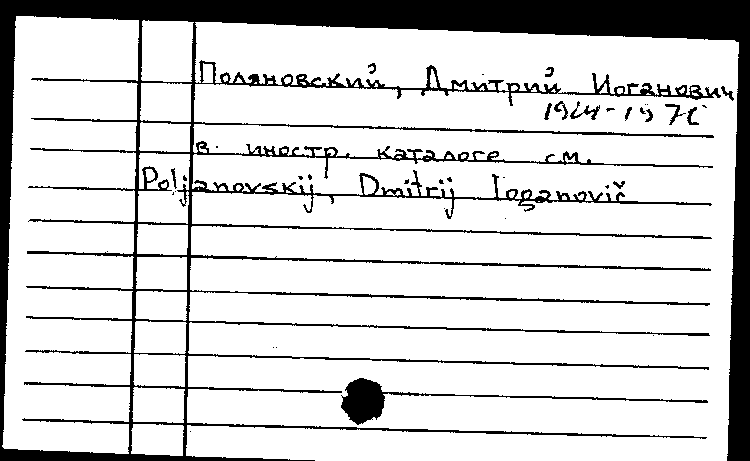 Поляновский, Дмитрий Иоганович
в. иностр. каталоге см.
Poljanovskij, Dmitrij Ioganovič